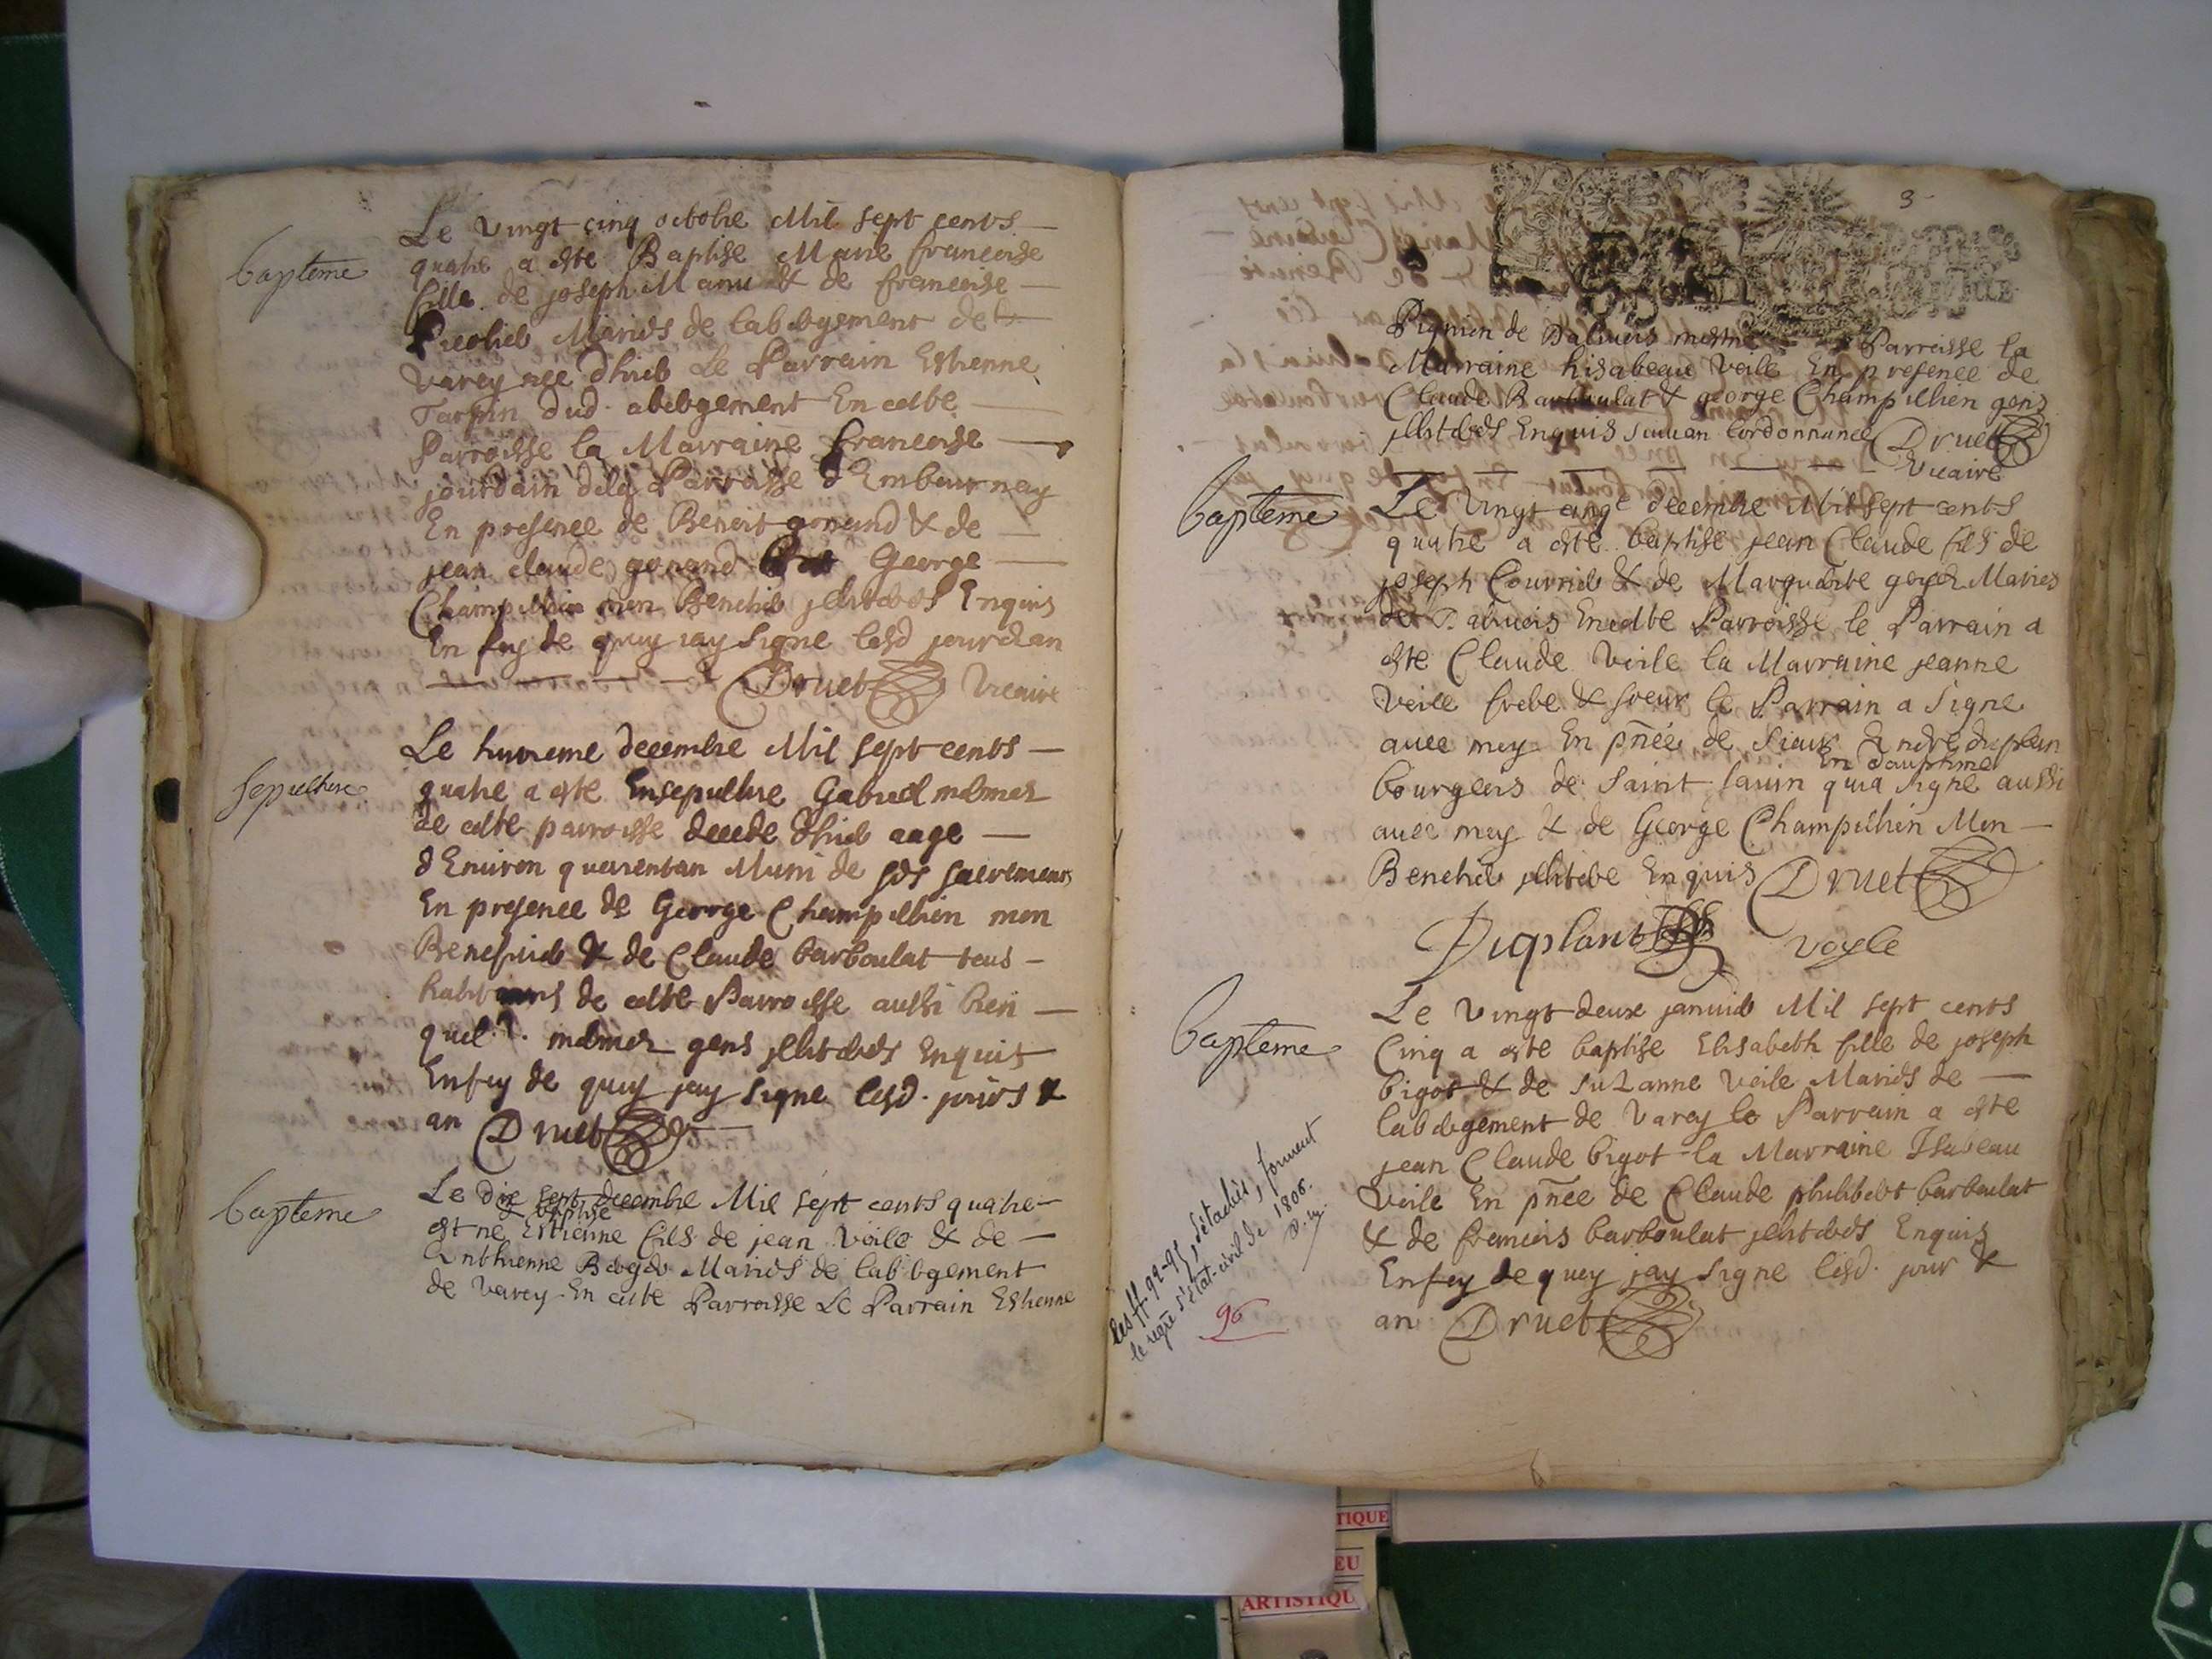 bapteme
Le vingt cinq octobre Mil sept cents
quatre a este Baptise Marie francoise
fille de joseph Manu & de francoise
Maries de labergement de
varey nee dhier Le Parrain Estienne
Tarpin dud. abergement En cette
Parroisse la Marraine francoise
jourdain dela Parroisse dEmbournay
En presence de Benoit gonand & de
jean claude gonand George
Champillien mon Benefrier jllitteres Enquis
En foy de quoy jay signe lesd jour & an
Druet Vicaire
sepulture
Le huitieme decembre Mil sept cents
quatre a este Ensepulture Gabriel
de cette parroisse decede dhier aage
dEnviron quarentan Muni de ses sacrements
En presence de George Champillien mon
Benefrier & de Claude barboulat tous
habitans de cette Parroisse aussi bien
que gens jllitteres Enquis
Enfoy de quoy jay signe lesd. jours &
an Druet
bapteme
Le dix sept decembre Mil sept cents quatre
& baptise
est ne Estienne fils de jean Voile & de
Anthienne Maries de labergement
de varey En cette Parroisse Le Parrain Estienne
3
Pignier de mesme Parroisse la
Marraine hisabeau Voile En presence de
Claude Barboulat & george Champillien gens
jllitteres Enquis suivan lordonnance Druet
Vicaire
bapteme
Le Vingt cinqe decembre Mil sept cents
quatre a este baptise jean Claude fils de
joseph Courrier & de Marguerite goyet Maries
de En cette Parroisse le Parrain a
este Claude Voile la Marraine jeanne
Voile frere & soeur le Parrain a signe
avec moy En pñce de sieur Andre duplan
En dauphine
bourgeois de saint savin qui a signe aussi
avec moy & de George Champillien Mon
Benefrier jllitere Enquis Druet
Duplant voyle
bapteme
Le Vingt deux janvier Mil sept cents
Cinq a este baptise Elisabeth fille de joseph
bigot & de suzanne Voile Maries de
labergement de Varey le Parrain a este
jean Claude bigot la Marraine Isabeau
Voile En pñce de Claude philibert barboulat
& de francois barboulat jllitteres Enquis
Enfoy de quoy jay signe lesd. jour &
an Druet
les ff. 92-95, détachés, forment
le registre d'état-civil de 1806.
96
TIQUE
EU
ARTISTIQU